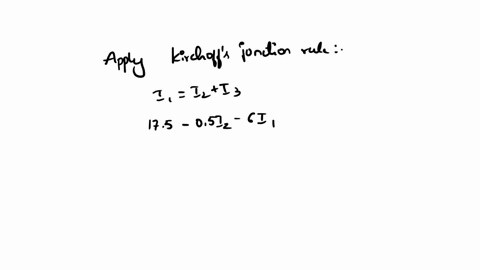 Apply Kirchoff's junction rule:.
I₁ = I₂ + I₃
17.5 - 0.5I₂ - 6I₁